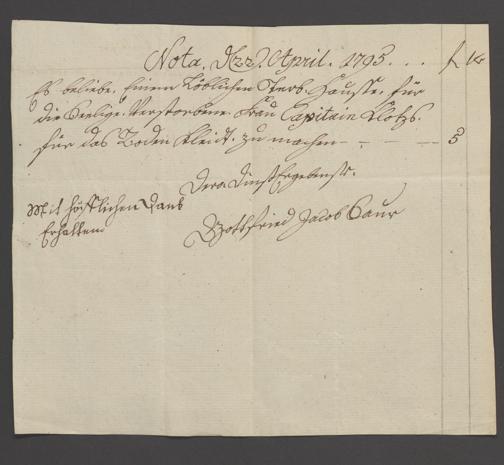 Nota. d. 22. April. 1795. . . f kr
Es beliebe. Einem Löblichen Sterb. Hausse. für
die Seelige. Verstorbene. Frau Capitain Klotzs.
für das Boden Kleidt. zu machen - - - - 5
Dero dienst Ergebenstr.
Mit höfflichen Dank
Erhalten
Gottfried Jacob Baur